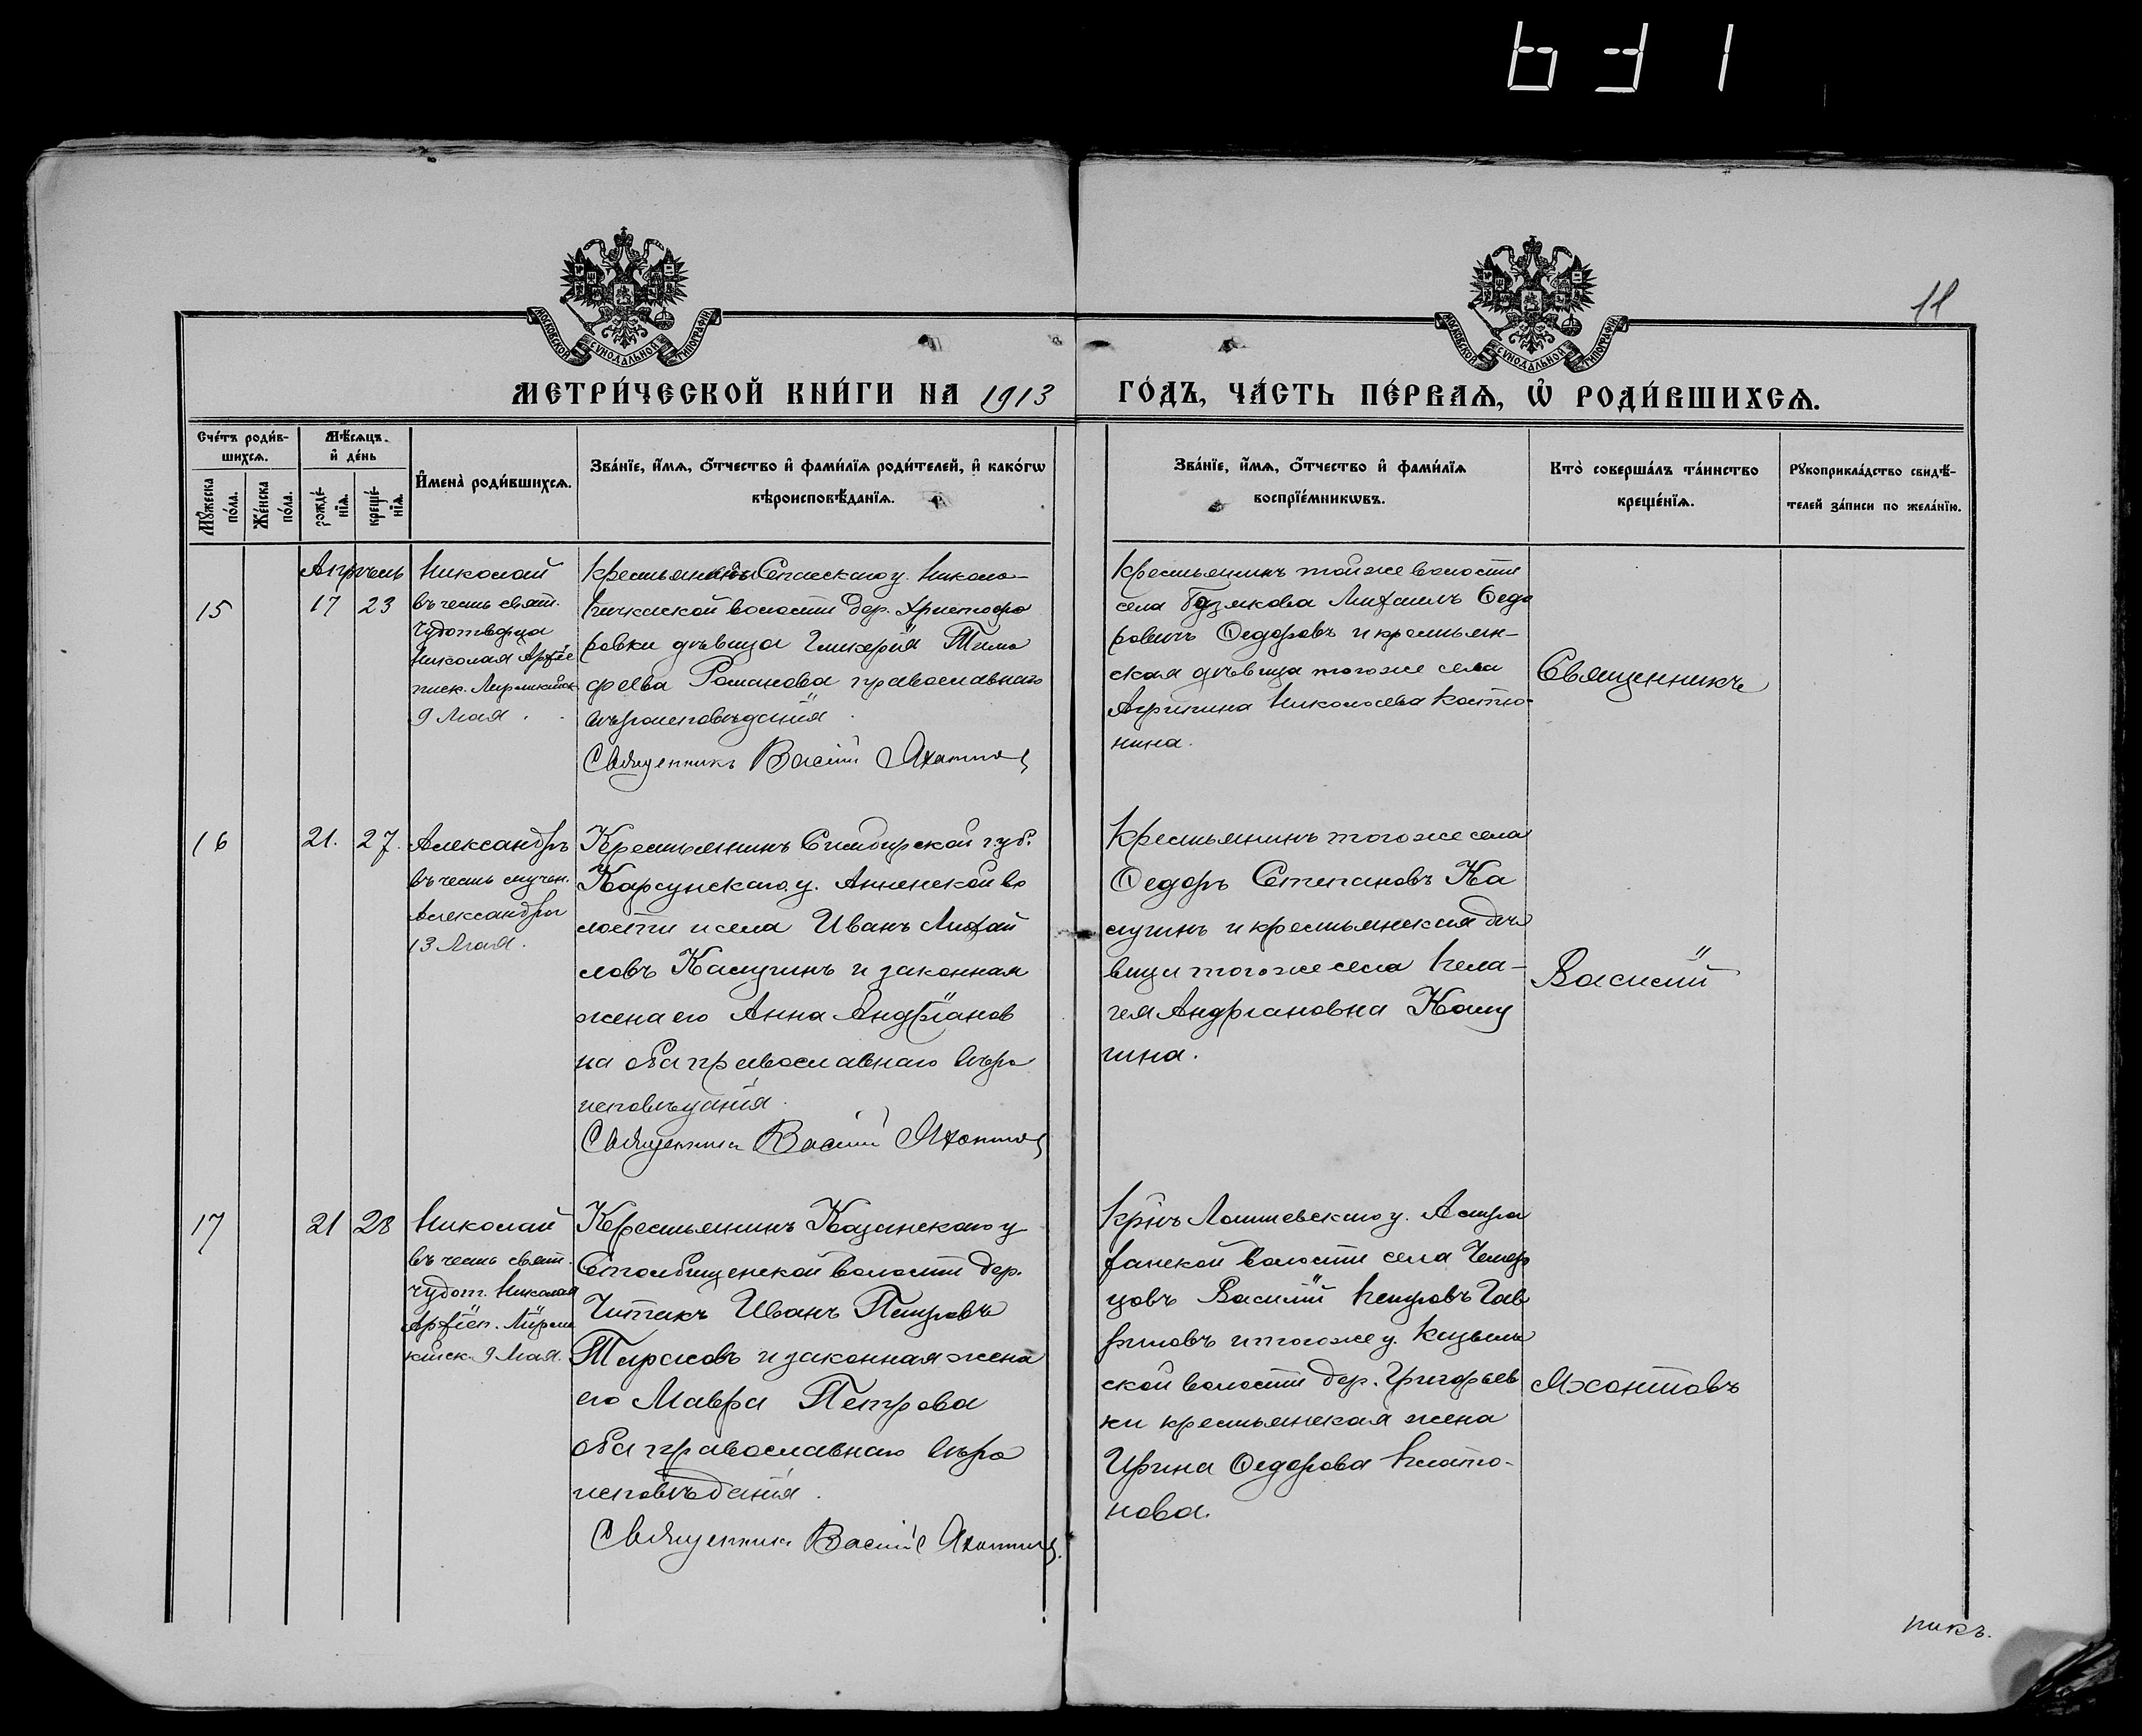 631
11
МОСКОВСКОЙ СУНОДАЛЬНОЙ ТИПОГРАФІИ
МОСКОВСКОЙ СУНОДАЛЬНОЙ ТИПОГРАФІИ
МЕТРИ́ЧЕСКОЙ КНИ́ГИ НА 1913 ГО́ДЪ, ЧА́СТЬ ПЕ́РВАѦ, Ѿ РОДИ́ВШИХСѦ.
Сче́тъ роди́в-
шихсѧ.
Мѣ́сѧцъ
и҆ де́нь
Мꙋ́жеска по́ла.
Же́нска по́ла.
рожде́-нїѧ.
креще́-нїѧ.
И҆мена̀ роди́вшихсѧ.
Зва́нїе, и҆́мѧ, ѻ҆́тчество и҆ фами́лїѧ роди́телей, и҆ како́гѡ
вѣроисповѣ́данїѧ.
Зва́нїе, и҆́мѧ, ѻ҆́тчество и҆ фами́лїѧ
воспрїе́мникѡвъ.
Кто̀ соверша́лъ та́инство
креще́нїѧ.
Рꙋкоприкла́дство свидѣ́-
телей за́писи по жела́нїю.
Апрѣль
15
17 23
Николай
въ честь свят.
Чудотворца
Николая Архіе
писк. Мирликійск
9 Мая.
Спасскаго у. Николо-
волости дер. Христофо
ровки дѣвица Гликерія Тимо
феева Романова православнаго
вѣроисповѣданія
Священникъ Васілій Яхонтовъ
Крестьянинъ той же волости
села Михаилъ Ѳедо
ровичъ Ѳедоровъ и крестьян-
ская дѣвица того же села
Агрипина Николаева Костю-
нина.
Священникъ
16
21. 27.
Александръ
въ честь мучен.
Александра
13 Мая.
Крестьянинъ Симбирской губ.
Карсунскаго у. Анненской во
лости и села Иванъ Михай
ловъ Калугинъ и законная
жена его Анна Андріанов
на оба православнаго вѣро
исповѣданія.
Священникъ Васілій Яхонтовъ
Крестьянинъ того же села
Ѳедоръ Степановъ Ка
лугинъ и крестьянская дѣ
вица того же села Пела-
гея Андриановна Калу
гина.
Василій
17
21 28
Николай
въ честь свят.
чудот. Николая
Архіеп. Мірли
кійск. 9 Мая.
Крестьянинъ Казанскаго у
Столбищенской волости дер.
Читакъ Иванъ Петровъ
Тарасовъ и законная жена
его Мавра Петрова
оба православнаго вѣро
исповѣданія.
Священникъ Васілій Яхонтовъ.
Крнъ Лаишевскаго у. Астра
ханской волости села Чемер
цовъ Василій Петровъ Гав
риловъ и того же у.
ской волости дер. Григорьев
ки крестьянская жена
Ирина Ѳедорова Плато-
нова.
Яхонтовъ
никъ.